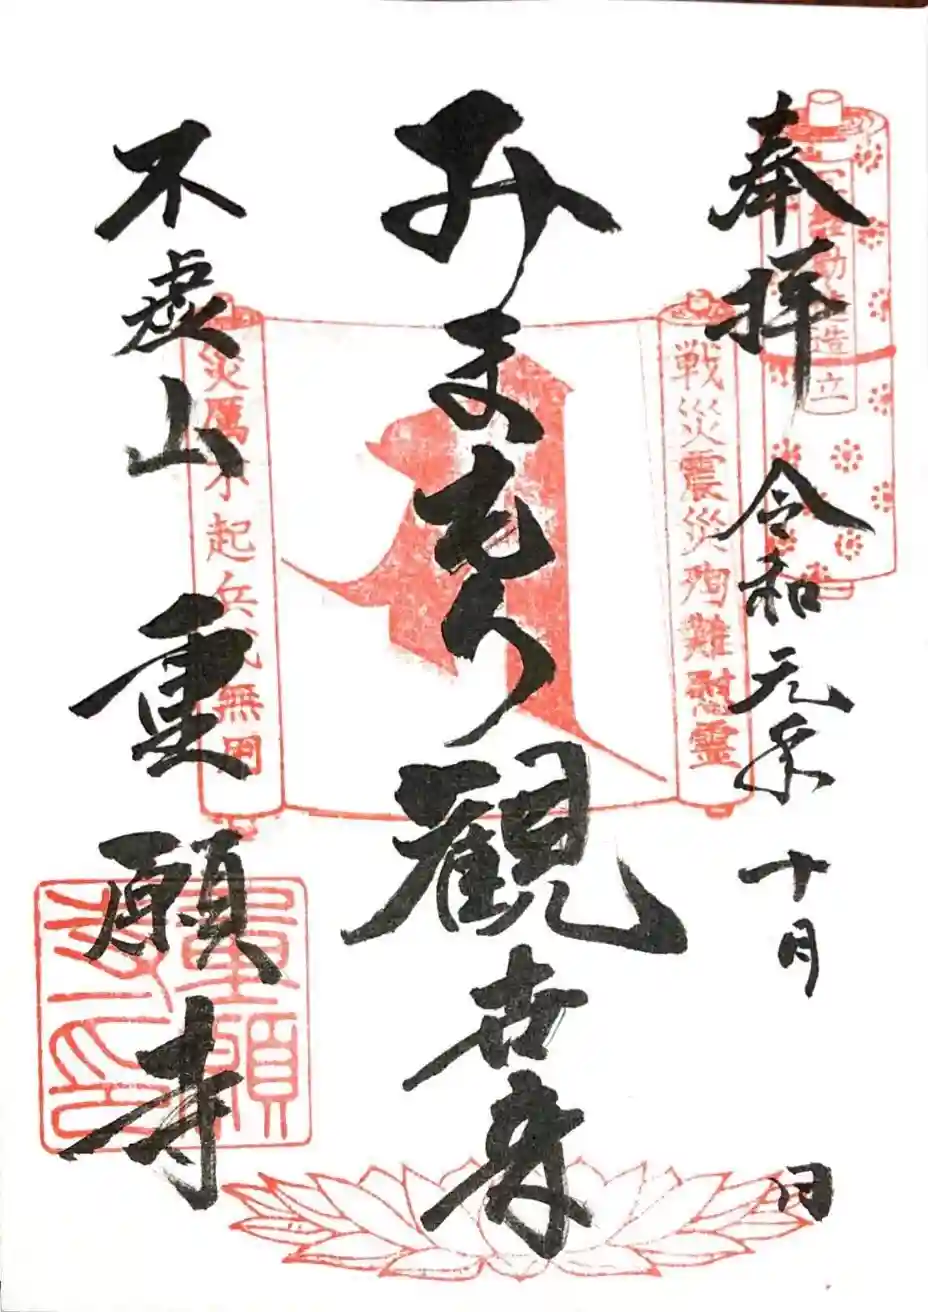 奉拝
令和元年 十月 日
みまもり観世音
不虚山 重願寺
戦災震災殉難慰霊
災厲不起兵戈無用
造立
重願寺印